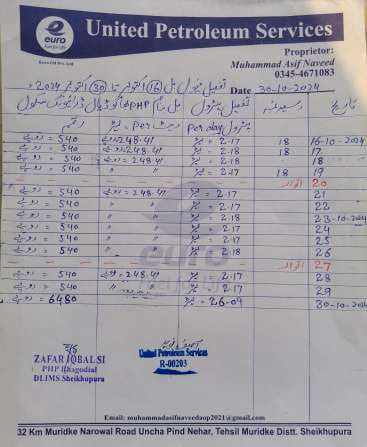 euro
Fuel for Life
Euro Oil Pvt. Ltd.
United Petroleum Services
Proprietor:
Muhammad Asif Naveed
0345-4671083
Date 30-10-2024
تفصیل فیول بل 16 اکتوبر تا 30 اکتوبر 2024
تاریخ رسید نمبر تفصیل پیٹرول رقم
پیٹرول per day ریٹ per لیٹر
16-10-2024 18 2.17 = لیٹر 248.41 = روپے 540 = روپے
17 18 2.18 = لیٹر 248.41 = روپے 540 = روپے
18 2.18 = لیٹر 〃 〃 540 = روپے
19 18 2.17 = لیٹر 〃 〃 540 = روپے
20 اتوار
21 2.17 = لیٹر 248.41 = روپے 540 = روپے
22 2.17 = لیٹر 〃 〃 540 = روپے
23-10-2024 2.18 = لیٹر 〃 〃 540 = روپے
24 2.17 = لیٹر 〃 〃 540 = روپے
25 2.17 = لیٹر 〃 〃 540 = روپے
26 2.18 = لیٹر 〃 〃 540 = روپے
27 اتوار
28 2.17 = لیٹر 248.41 = روپے 540 = روپے
29 2.18 = لیٹر 〃 〃 540 = روپے
30-10-2024 26.09 = لیٹر 6480 = روپے
ZAFAR IQBAL SI
PHP
DLIMS Sheikhupura
United Petroleum Services
R-00203
Email: muhammadasifnaveedaop2021@gmail.com
32 Km Muridke Narowal Road Uncha Pind Nehar, Tehsil Muridke Distt. Sheikhupura